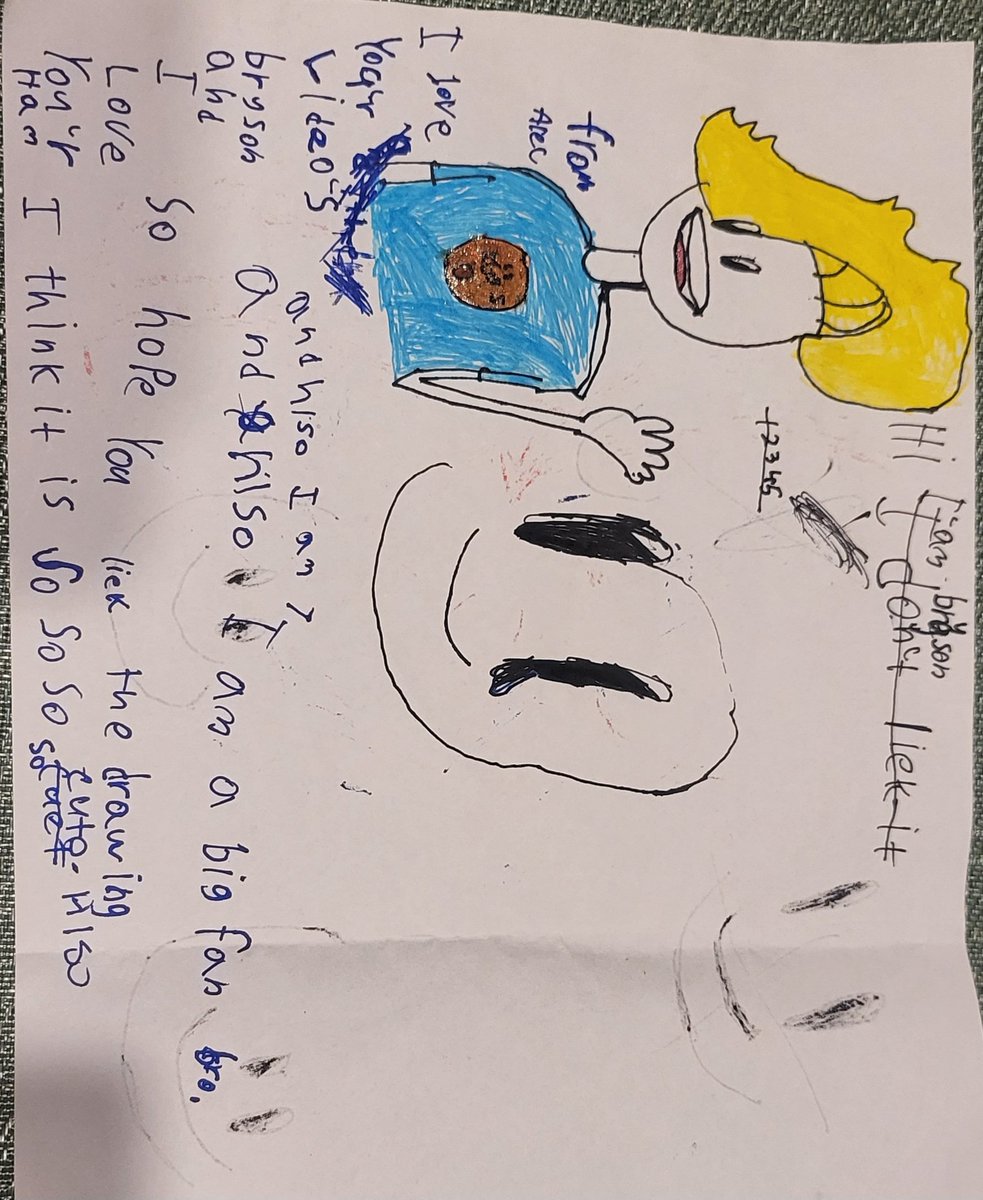 Hi I am bryson
I don't liek it
12345
from
Alec
I love
your
video's
bryson
and
I
Love
You'r
Ham
and hlso I am
and hlso I am a big fan bro.
So hope You liek the drawing
I think it is So so so so cute. Hlso